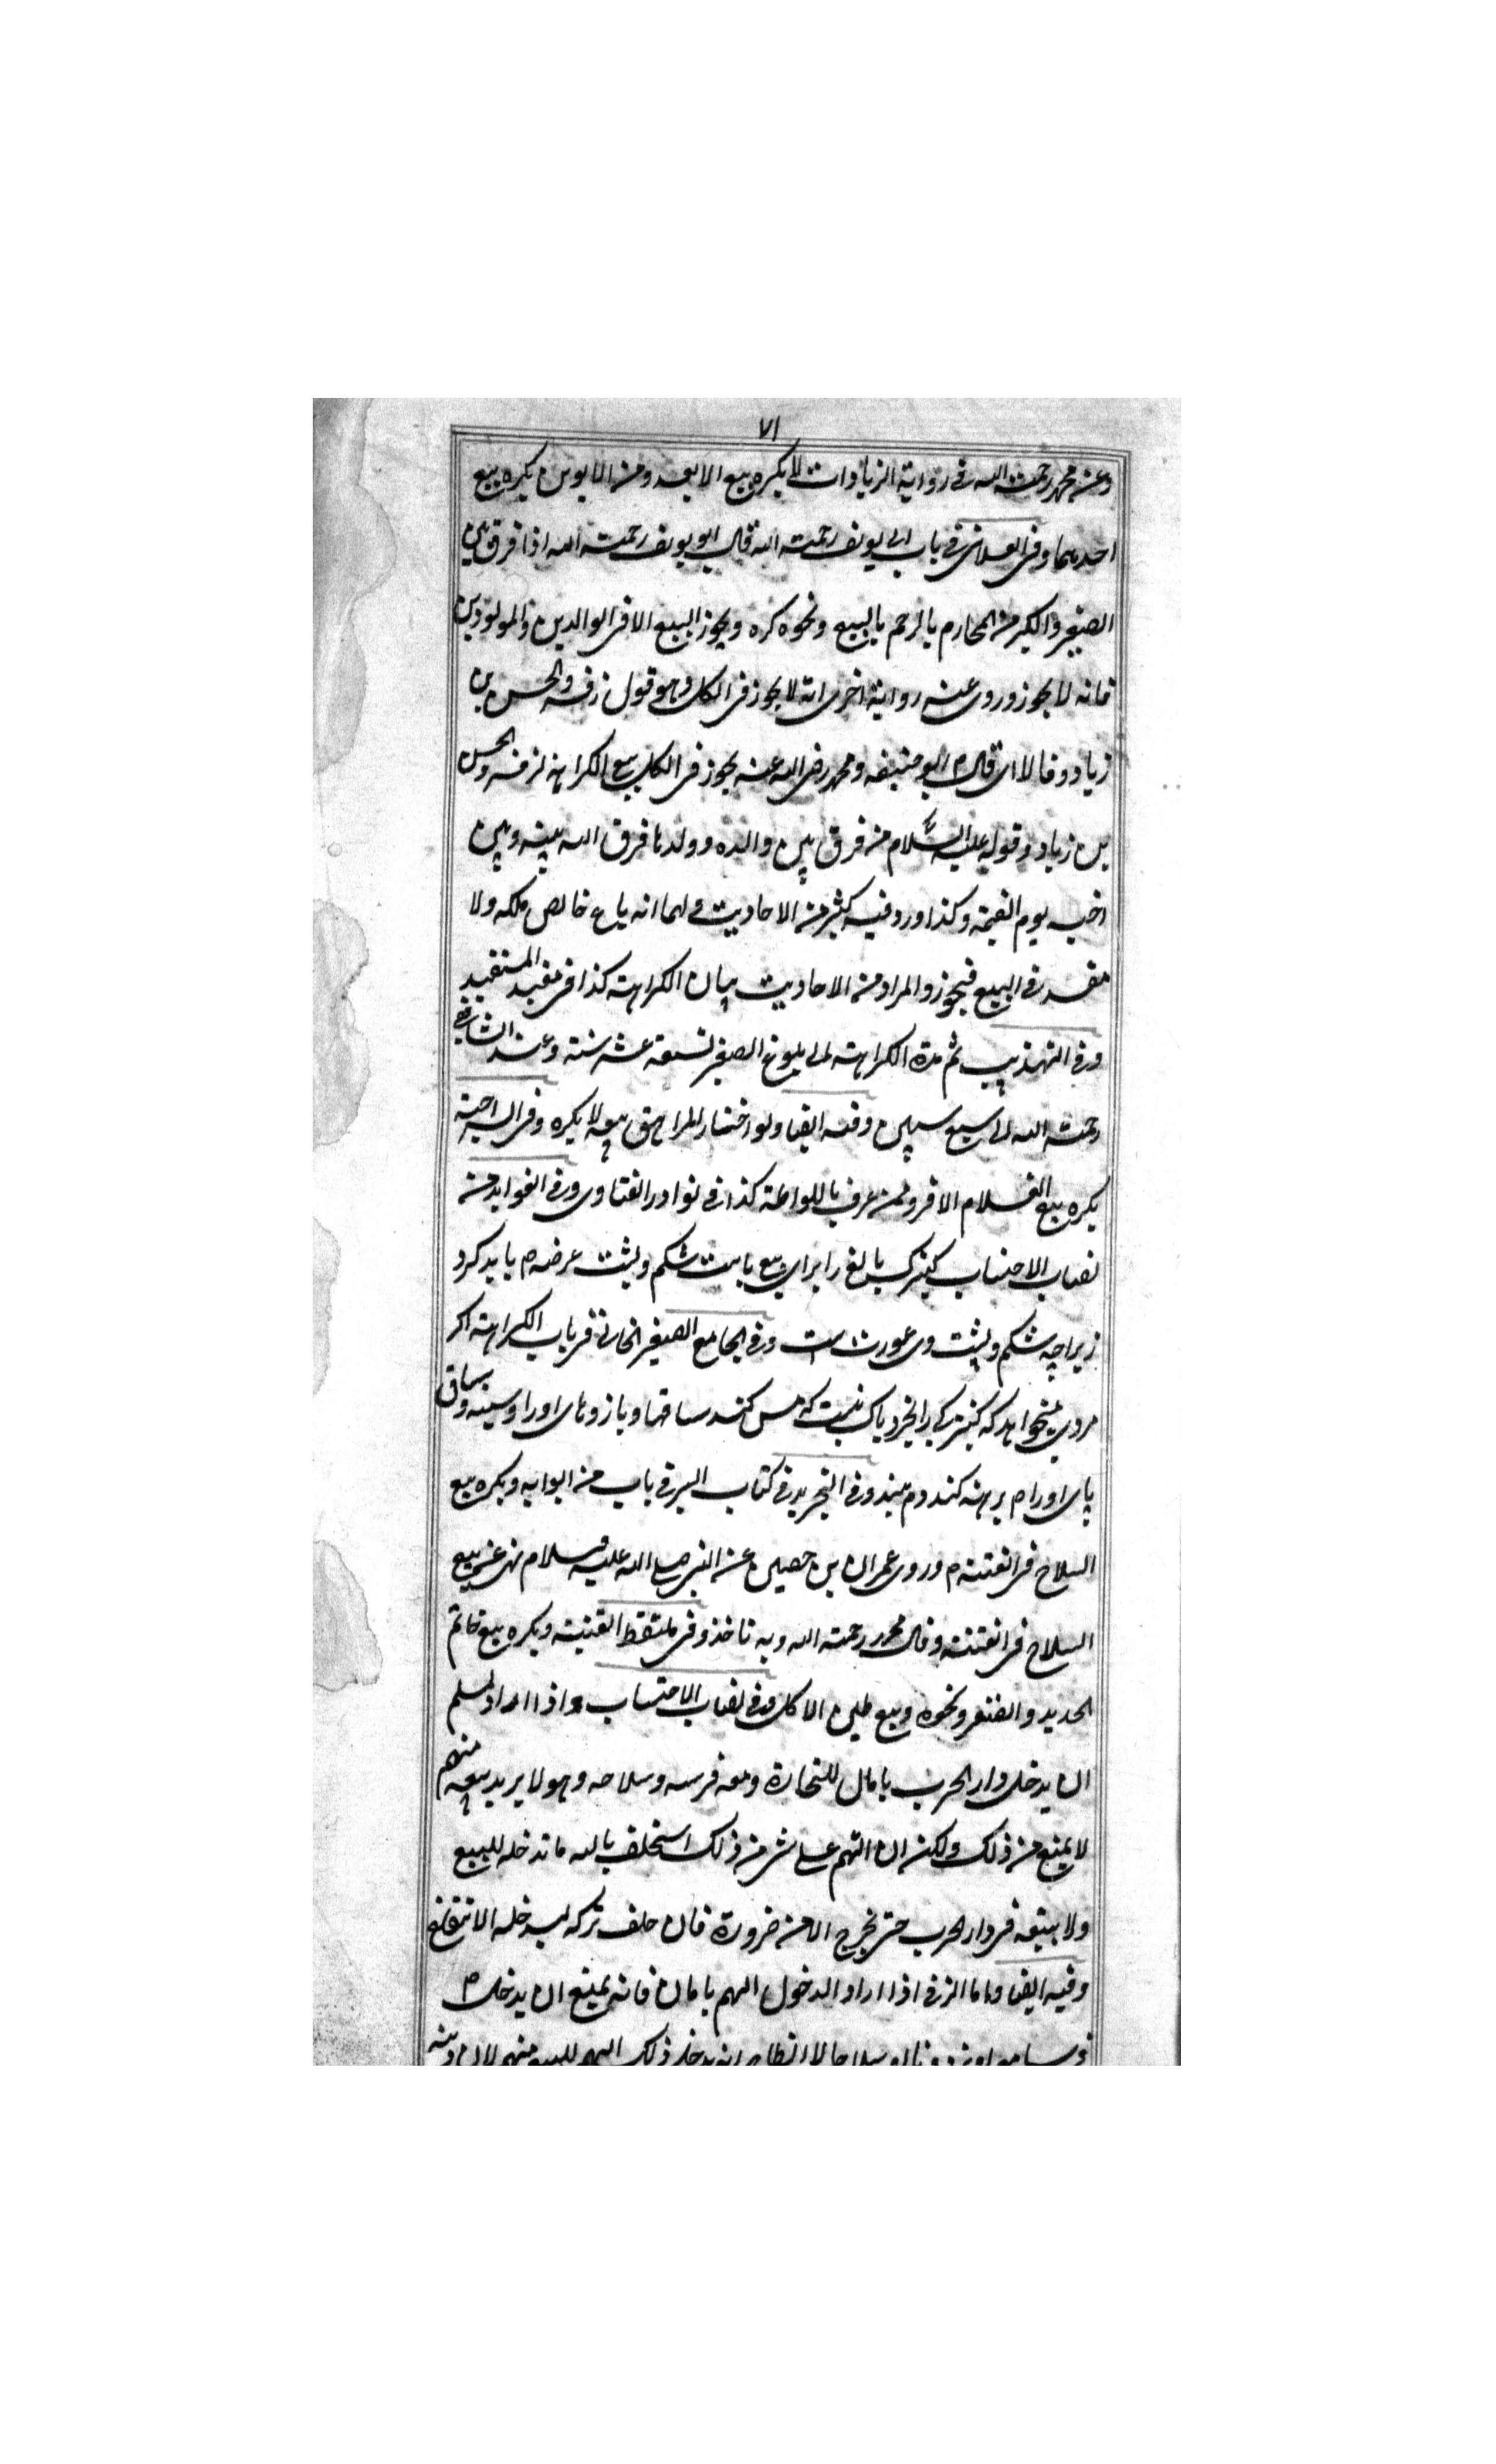 ٧١
وعن محمد رحمت الله في رواية الزيادات لا يكره بيع الابعد ومن الابوين يكره بيع
احدهما وفي العلائي في باب ابي يوسف رحمت الله قال ابو يوسف رحمت الله اذا فرق بين
الصغير والكبير من المحارم بالرحم بالبيع ونحوه كره ويجوز البيع الا في الوالدين والمولودين
فانه لا يجوز وروي عنه رواية اخرى انه لا يجوز في الكل وهو قول زفر والحسن بن
زياد وقالا اي قال ابو حنيفه ومحمد رضي الله عنه يجوز في الكل مع الكراهة لزفر والحسن
بن زياد وقوله عليه السلام من فرق بين والده وولدها فرق الله بينه وبين
احبه يوم القيمة وكذا ورد فيه كثير من الاحاديث ولهما انه باع خالص ملكه ولا
مفسد في البيع فيجوز والمراد من الاحاديث بيان الكراهته كذا في مفيد المستفيد
وفي التهذيب ثم مدة الكراهته الى بلوغ الصغير تسعة عشر سنة وعند الشافعي
رحمت الله الى سبع سنين وفيه ايضا ولو اختار المراهق بيعه لا يكره وفي السراجية
يكره بيع الغلام الامرد ممن عرف باللواطة كذا في نوادر الفتاوى وفي الفوايد من
نصاب الاحتساب كنيزك بالغ را براي بيع بايست شكم وپشت عرضه م بايد كرد
زيرا چه شكم وپشت وى عورت است وفي الجامع الصغير الخاني في باب الكراهته اكر
مردي ميخواهد كه كنيزكي را بخرد باك نيست كه مس كند ساقها وبازوهاى اورا وسينه وساق
پاى اورا م برهنه كند وم بيند وفي التجريد في كتاب السير في باب من ابوابه ويكره بيع
السلاح في الفتنته م وروى عمران بن حصين عن النبي صلى الله عليه وسلام نهى عن بيع
السلاح في الفتنته وقال محمد رحمت الله وبه ناخذ وفي ملتقط القنيته ويكره بيع خاتم
الحديد والصفر ونحوه وبيع طين الاكل وفي نصاب الاحتساب واذا اراد المسلم
ان يدخل دار الحرب بامال للتجارة ومعه فرسه وسلاحه وهو لا يريد بيعه منهم
لا يمنع من ذلك ولكن ان اتهم على شر من ذلك استحلف بالله ما تدخله للبيع
ولا يبيعه في دار الحرب حتى يخرج الا من ضرورة فان حلف تركه ليدخله
وفيه ايضا واما الذمي اذا اراد الدخول اليهم بامان فانه يمنع ان يدخل م